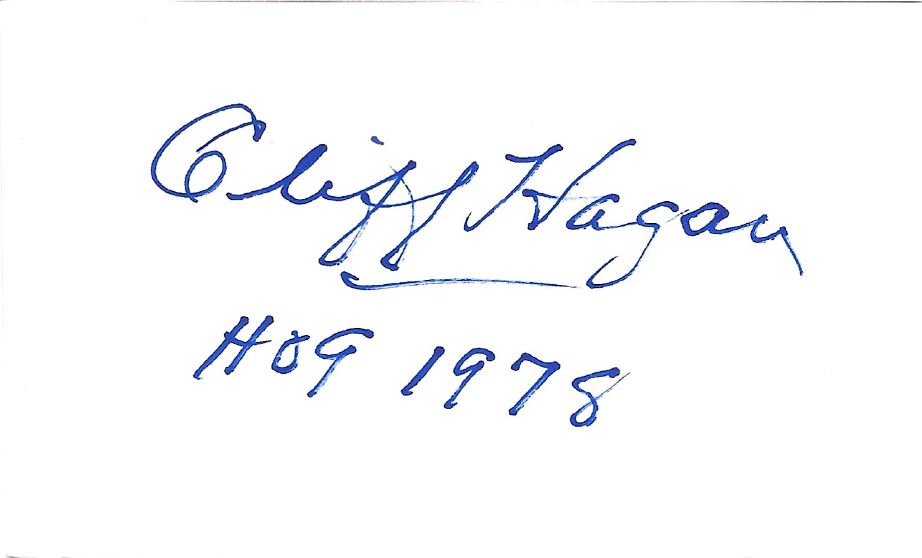 Cliff Hagan
HOF 1978